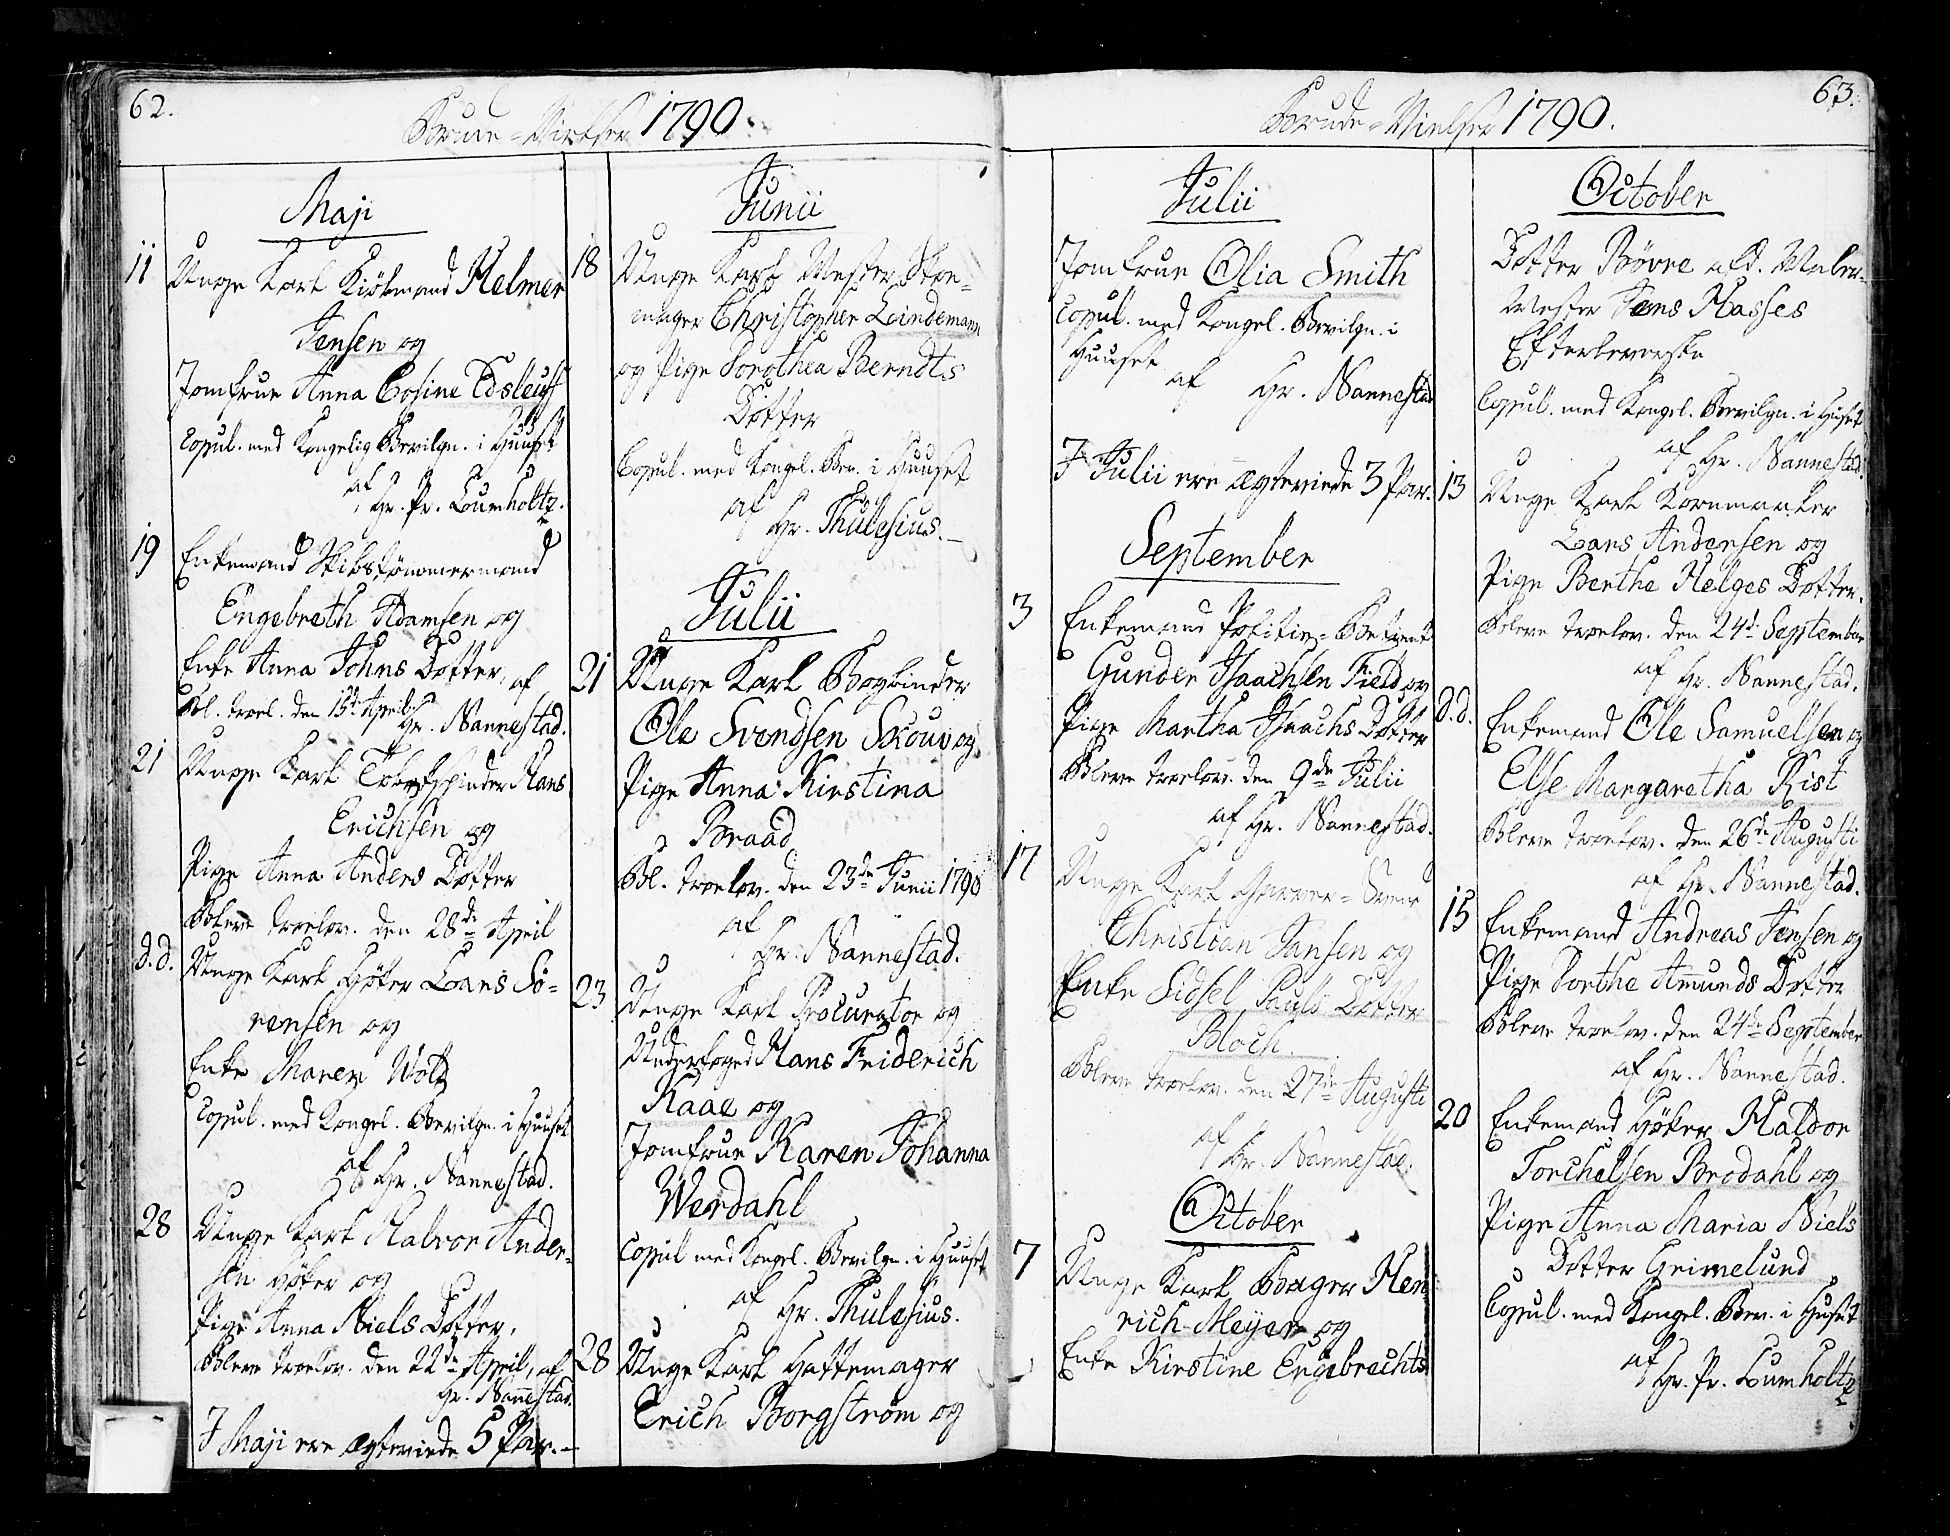 62.
Brude-Vielser 1790.
Maji
11 Unge Karl Kiöbmand Helmer
Jensen og
Jomfrue Anna Cosine Edsleuf
Copul. med Kongelig Bevilgn. i Huuset
af
Hr. Pr. Lumholtz.
19 Enkemand Skibstømmermand
Engebreth Adamsen og
Enke Anna Johns Dotter, af
Bl. troel. den 15de Aprilis Hr. Nannestad.
21 Unge Karl Tobakspinder Hans
Erichsen og
Pige Anna Anders Dotter
Bleve troelov. den 28de April
d.d. Unge Karl Høker Lars Sö-
rensen og
Enke Maren Wold
Copul. med Kongel. Bevilgn. i Huuset
af Hr. Nannestad.
28 Unge Karl Halvor Ander-
sen Høker og
Pige Anna Niels Dotter.
Bleve troelov. den 22de April, af
Hr. Nannestad.
I Maji ere ægteviede 5 Par.
Junii
18 Unge Karl Mester Skoe-
mager Christopher Lindemann
og Pige Dorothea Berndts
Dotter
Copul. med Kongel. Bev. i Huuset
af
Hr. Thulesius.
Julii
21 Unge Karl Bogbinder
Ole Svendsen Skouv og
Pige Anna Kirstina
Braad
Bl. troelov. den 23de Junii 1790
af
Hr. Nannestad.
23 Unge Karl Procurator og
Underfoged Hans Friderich
Kaae og
Jomfrue Karen Johanna
Werdahl
Copul med Kongel. Bevilgn. i Huuset
af
Hr. Thulesius.
28 Unge Karl Hattemager
Erich Borgström og
63.
Brude-Vielser 1790.
Julii
Jomfrue Olia Smith
Copul. med Kongel. Bevilgn. i
Huuset
af Hr. Nannestad
I Julii ere ægteviede 3 Par.
September
3 Enkemand Politie-Betient
Gunder Isaachsen Field og
Pige Martha Isaachs Dotter
Bleve troelov. den 9de Julii
af Hr. Nannestad.
17 Unge Karl Garver-Svend
Christian Jansen og
Enke Sidsel Pauls Dotter
Bloch.
Bleve troelov. den 27de Augusti
af
Hr. Nannestad.
October
7 Unge Karl Bager Hen
rich Meyer og
Enke Kirstine Engebrechts
October
Dotter Bövre afd. Maler-
Mester Jens Hasses
Efterleverske
Copul. med Kongel. Bevilgn. i Huset
af Hr. Nannestad.
13 Unge Karl Kornmaaler
Lars Andersen og
Pige Berthe Helges Dotter.
Bleve troelov. den 24de September
af Hr. Nannestad.
d.d. Enkemand Ole Samuelsen og
Else Margaretha Rist
Bleve troelov. den 26de Augusti
af Hr. Nannestad.
15 Enkemand Andreas Jensen og
Pige Dorthe Amunds Dotter
Bleve troelov. den 24de September
af Hr. Nannestad.
20 Enkemand Høker Halvor
Torchelsen Brodahl og
Pige Anna Maria Niels
Dotter Grimelund
Copul. med Kongel. Bev. i Huset
af
Hr. Pr. Lumholtz